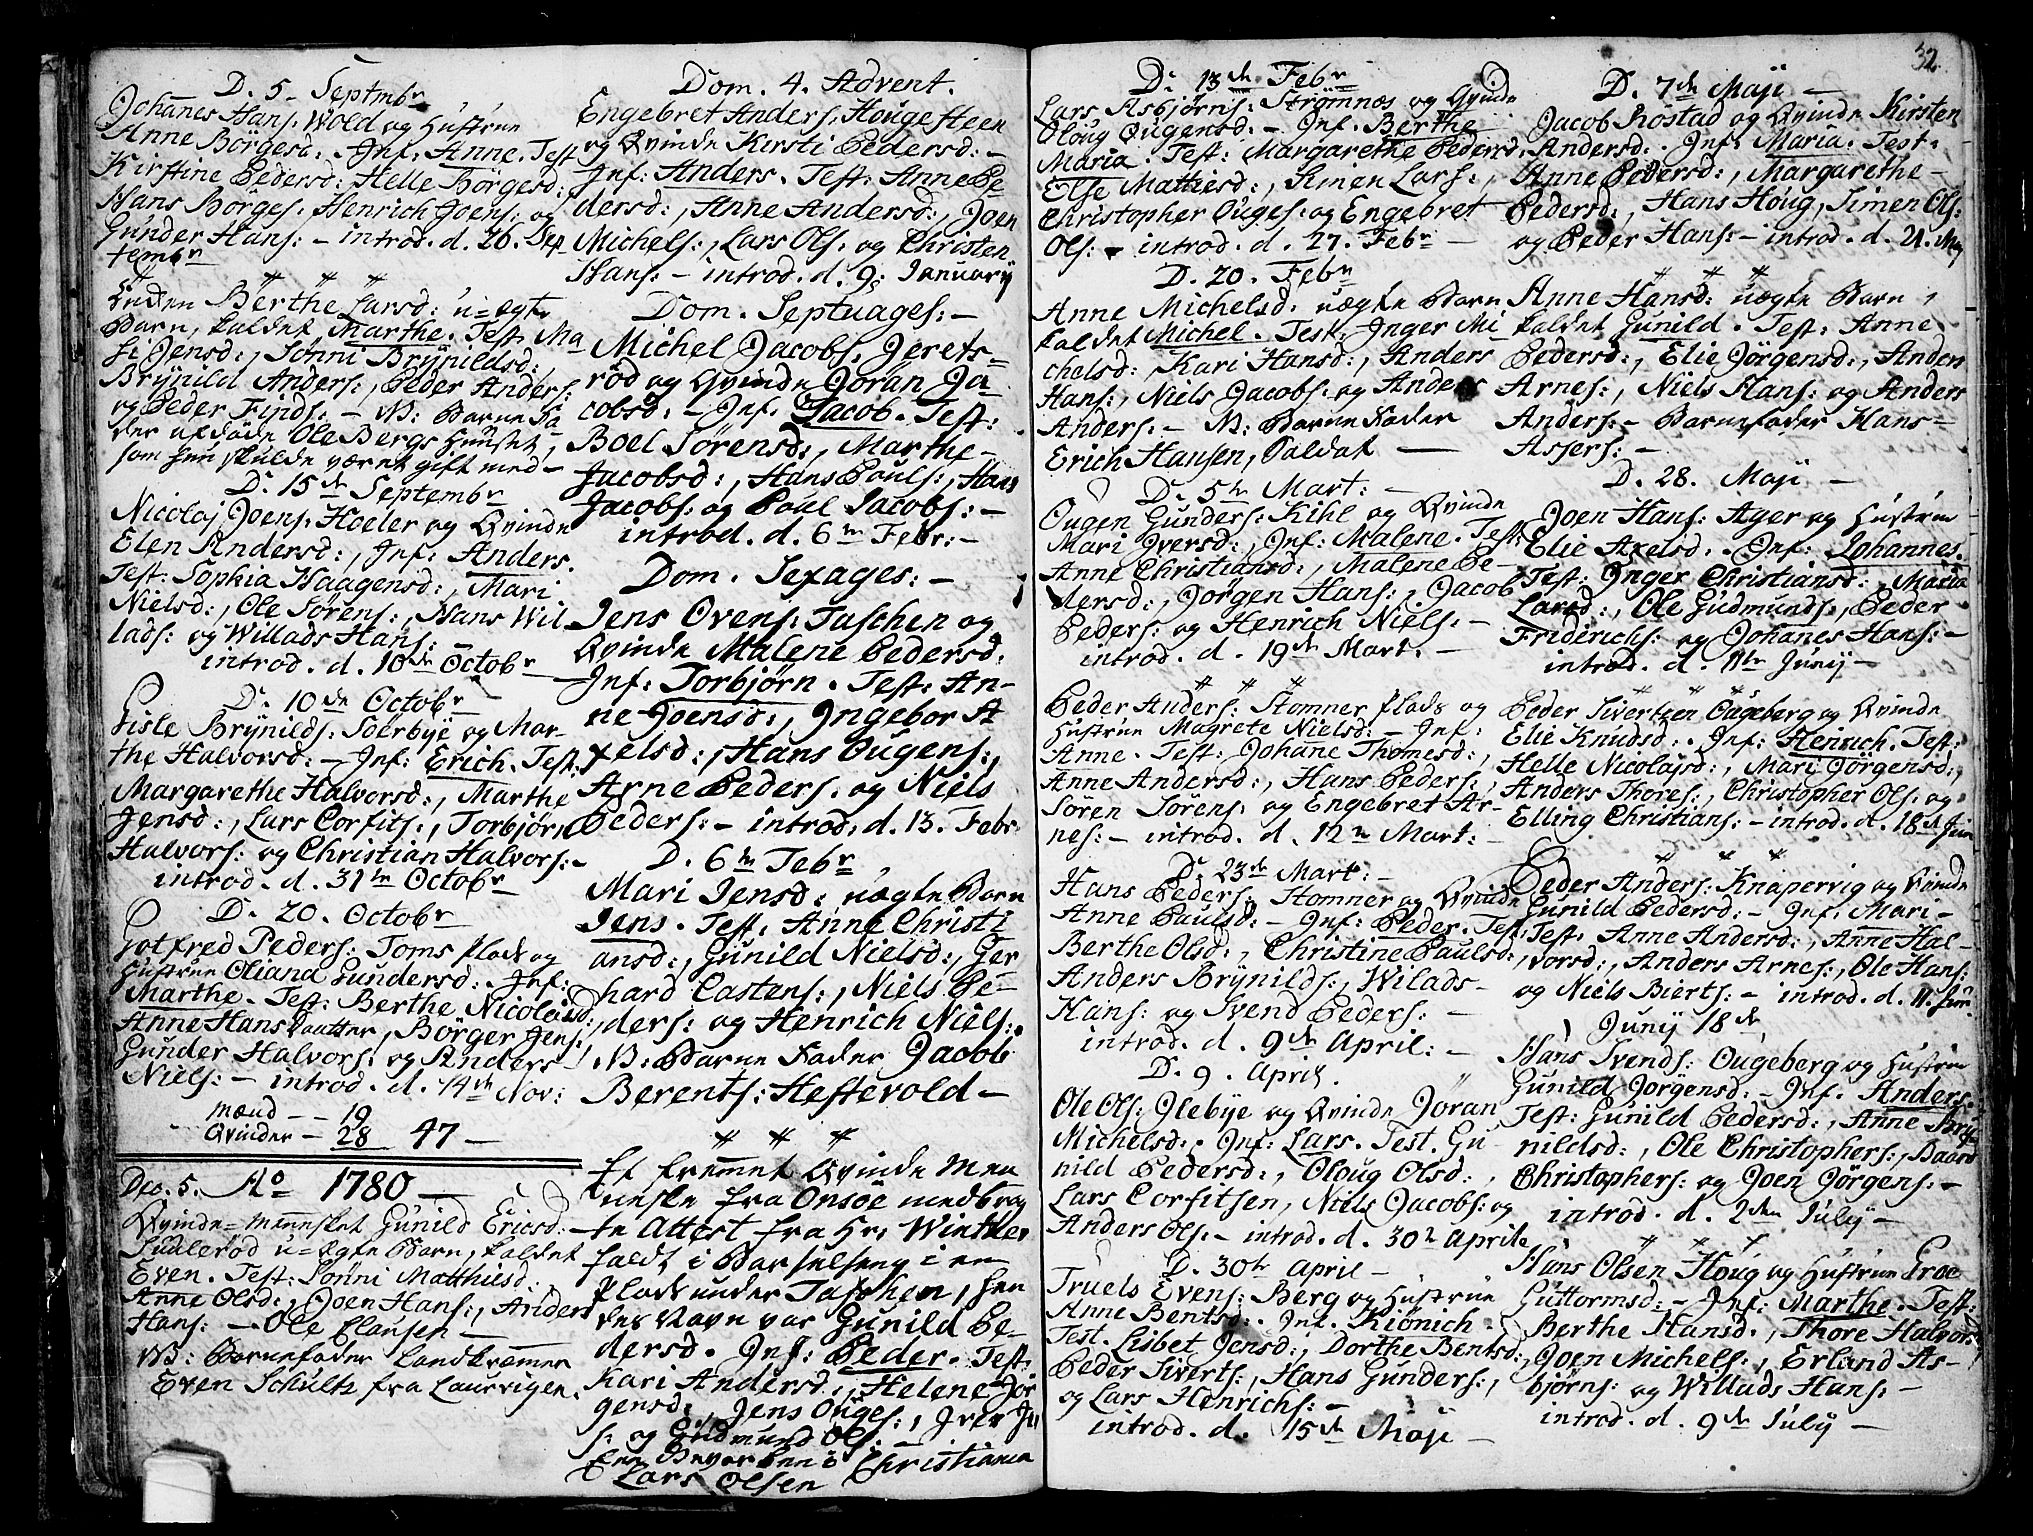 D. 5. Septmbr
Johanes Hans. Wold og Hustrue
Anne Börgesd: Inf: Anne. Test
Kirstine Pedersd: Helle Börgesd:
Hans Borges: Henrich Joens: og
Gunder Hans: – introd. d. 26. Sep
tembr
Berthe Larsd: u=ægte
Barn, kaldet Marthe. Test. Ma
si Jensd:, Sønni Brÿnildsd:
Brÿnild Anders:, Peder Anders:
og Peder Finds: – NB: Barne Fa
der afdöde Ole Bergs
som hun skulde været gift med –
D. 15de Septembr
Nicolaj Joens: Hoeler og Qvinde
Elen Andersd:, Inf: Anders.
Test: Sophia Haagensd:, Mari
Nielsd:, Ole Sørens:, Hans Wil
lads: og Willads Hans:
introd. d. 10de Octobr
D. 10de Octobr
Gisle Brÿnilds: Soerbÿe og Mar-
the Halvorsd: – Inf: Erich. Test:
Margarethe Halvorsd:, Marthe
Jensd:, Lars Corfits:, Torbjörn
Halvors: og Christian Halvors: –
introd. d. 31te Octobr
D. 20. Octobr
Gotfred Peders: Toms Plads og
Hustrue Oliana Gundersd: Inf:
Marthe. Test: Berthe Nicolaisd:,
Anne Hans Daatter, Börger Jens:
Gunder Halvors: og Anders
Niels: – introd. d. 14de Nov:
Mænd – – 19
Qvinder – 28 47 –
Dec. 5. Ao 1780
Qvinde=Mennesket Gunild Ericsd:
u=ægte Barn, kaldet
Even. Test: Sønni Matthiesd:,
Anne Olsd:, Joen Hans:, Anders
Hans: – Ole Clausen –
NB: Barnefader Landkræmer
Even Schultz fra Laurvigen.
Dom. 4. Advent.
Engebret Anders. Hougesteen
og Qvinde Kirsti Pedersd: –
Inf: Anders. Test: Anne Pe
dersd:, Anne Andersd:, Joen
Michels:, Lars Ols: og Christen
Hans: – introd. d. 9. Januarÿ
Dom. Septuages: –
Michel Jacobs. Jerets-
röd og Qvinde Joran Ja-
cobsd: – Inf: Jacob. Test:
Boel Sörensd:, Marthe-
Jacobsd:, Hans Pouls:, Hans
Jacobs: og Poul Jacobs: –
introd. d. 6te Febr: –
Dom. Sexages: –
Jens Ovens: Taschen og
Qvinde Malene Pedersd:
Inf: Torbjørn. Test: An-
ne Joensd:, Ingebor A
xelsd:, Hans Ougens:,
Arne Peders: og Niels
Peders: – introd. d. 13. Febr:
D. 6te Febr
Mari Jensd: uægte Barn
Jens. Test: Anne Christi
ansd:, Gunild Nielsd:, Ger
hard Castens:, Niels Pe-
ders: og Henrich Niels:
NB: Barne Fader Jacob
Berents: Heftevold –
Et fremmet Qvinde Men
neske fra Onsöe medbrag
te Attest fra Hr. Winther
faldt i Barselseng i en
Plads under Taschen, hen
des Navn var Gunild Pe-
dersd. Inf: Peder. Test:
Kari Andersd:, Helene Jör
gensd:, Jens Ouges:, Iver
s: og Gudmund Ols:
i Christiania
Lars Olsen
D. 13de Febr
Lars Asbjørns: Strömnes og Qvinde
Oloug Ougensd: – Inf: Berthe
Maria. Test: Margarethe Pedersd.
Else Mathiesd:, Simen Lars:,
Christopher Ouges: og Engebret
Ols: – introd. d. 27. Febr –
D. 20. Febr
Anne Michelsd: uægte Barn
kaldet Michel. Test: Inger Mi
chelsd:, Kari Hansd:, Anders
Hans:, Niels Jacobs: og Anders
Anders: – NB: Barne Fader
Erich Hansen, kaldet –
D. 5te Mart: –
Ougen Gunders: Kihl og Qvinde
Mari Iversd:, Inf: Malene. Test:
Anne Christiansd:, Malene Pe-
dersd:, Jörgen Hans:, Jacob
Peders: og Henrich Niels: –
introd. d. 19de Mart: –
Peder Anders. Stomner Plads og
Hustrue Magrete Nielsd: – Inf:
Anne. Test: Johane Thomesd:,
Anne Andersd:, Hans Peders:,
Soren Sörens: og Engebret Ar-
nes: – introd. d. 12te Mart: –
D. 23de Mart: –
Hans Peders: Stomner og Qvinde
Anne Paulsd: – Inf: Peder. Test:
Berthe Olsd:, Christine Paulsd:,
Anders Brÿnilds:, Wilads-
Hans: og Svend Peders: –
introd. d. 9de April: –
D. 9. April.
Ole Ols: Glebÿe og Qvinde Jöran
Michelsd:. Inf: Lars. Test. Gu-
nild Pedersd:, Oloug Olsd:,
Lars Corfitsen, Niels Jacobs: og
Anders Ols: – introd. d. 30te Aprile
D. 30te April –
Truels Evens: Berg og Hustrue
Anne Bentsd:. Inf. Kiönich.
Test. Lisbet Jensd:, Dorthe Bentsd:,
Peder Siverts:, Hans Gunders:,
og Lars Henrichs: –
introd. d. 15de Maji –
32
D. 7de Maji –
Jacob Rostad og Qvinde Kirsten
Andersd:. Inf: Maria. Test:
Anne Pedersd:, Margarethe-
Pedersd:, Hans Houg, Simen Ols:
og Peder Hans: – introd. d. 21. Maj
Anne Hansd: uægte Barn
kaldet Gunild. Test: Anne
Pedersd:, Elie Jørgensd:, Anders
Arnes:, Niels Hans: og Anders
Anders: – Barnefader Hans=
Asjers: –
D. 28. Maji –
Joen Hans: Ager og Hustrue
Elie Axelsd.. Inf: Johannes.
Test: Inger Christiansd:, Maria
Larsd:, Ole Gudmunds:, Peder
Friderichs: og Johanes Hans: –
introd. d. 11te Junÿ –
Peder Sivertsen Ougeberg og Qvinde
Elie Knudsd:. Inf: Henrich. Test:
Helle Nicolajsd:, Mari Jörgensd:,
Anders Thores:, Christopher Ols: og
Elling Christians: – introd. d. 18de Jun
Peder Anders: Knapervig og Qvinde
Gunild Pedersd: – Inf: Mari –
Test: Anne Andersd:, Anne Hal-
vorsd:, Anders Arnes:, Ole Hans:
og Niels Bierts: – introd. d. 11. Jun.
Junÿ 18de
Hans Svends: Ougeberg og Hustrue
Gunild Jorgensd: – Inf. Anders.
Test: Gunild Pedersd:, Anne Brÿ
nildsd:, Ole Christophers:, Baard
Christophers: og Joen Jörgens: –
introd. d. 2den Julÿ –
Hans Olsen Houg og Hustrue
Guttormsd: – Inf: Marthe. Test:
Berthe Hansd., Thore Halvors:
Joen Michels:, Erland As-
bjørns: og Willads Hans: –
introd. d. 9de Julÿ –